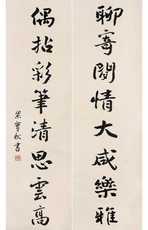 聊寄閒情大咸樂雅
偶拈彩筆清思雲高
榮寶秋書